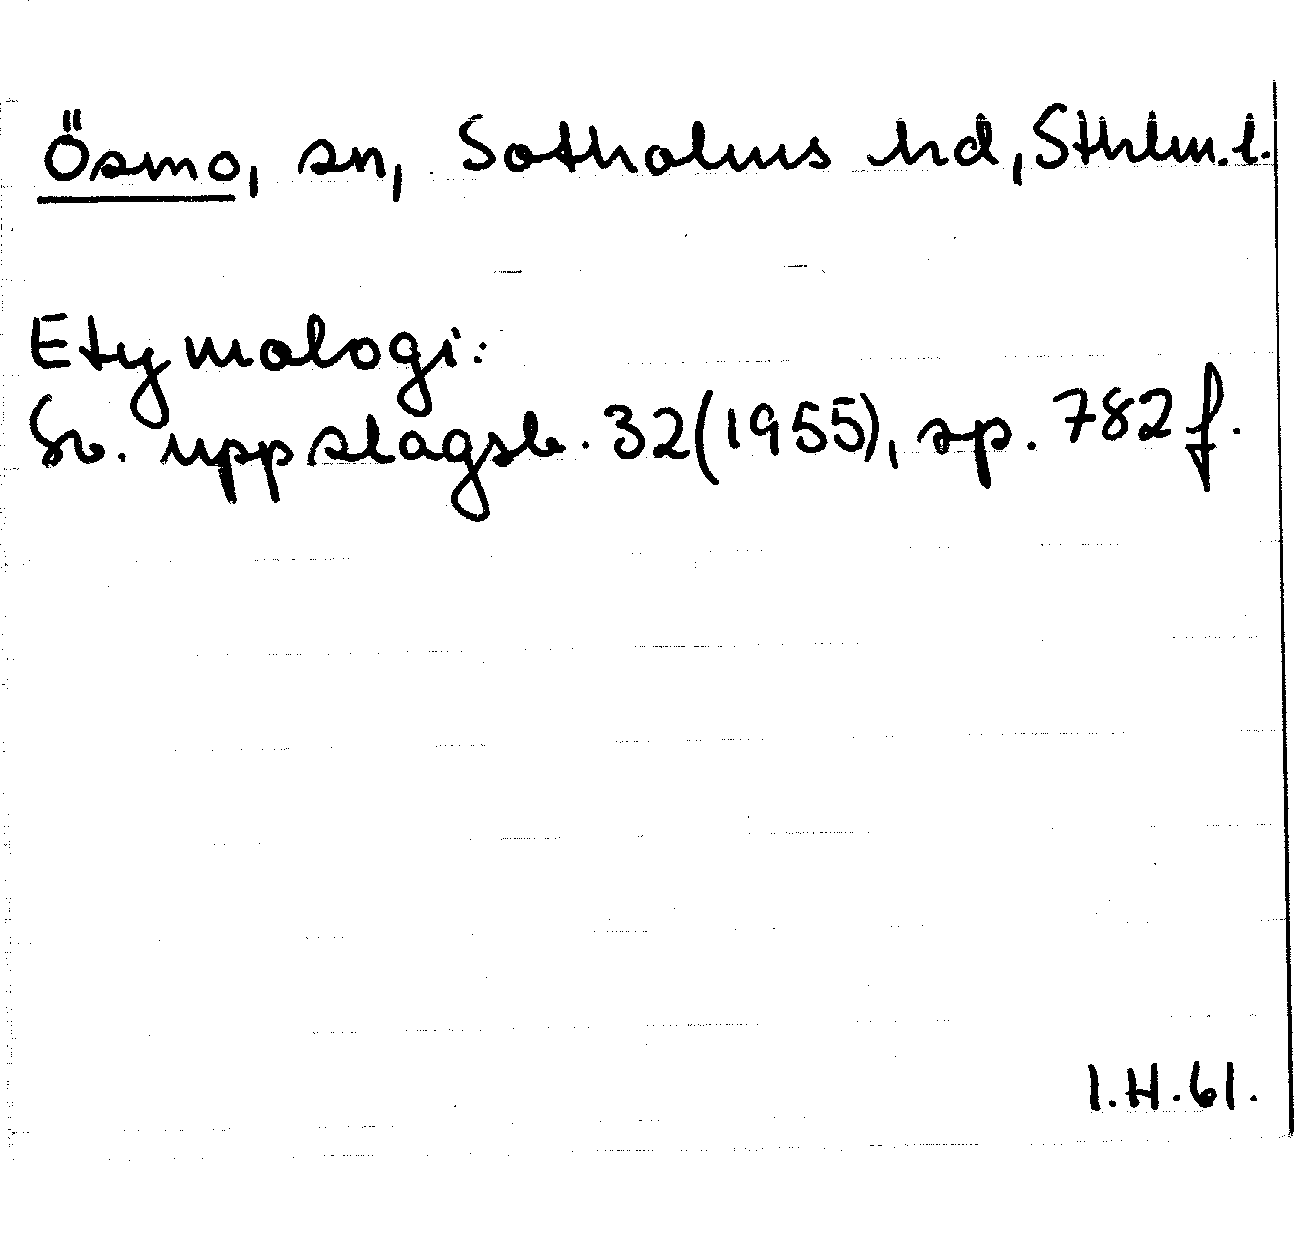 Ösmo, sn, Sotholms hd, Sthlm. l.
Etymologi:
Sv. uppslagsb. 32 (1955), sp. 782 f.
I.H. 61.